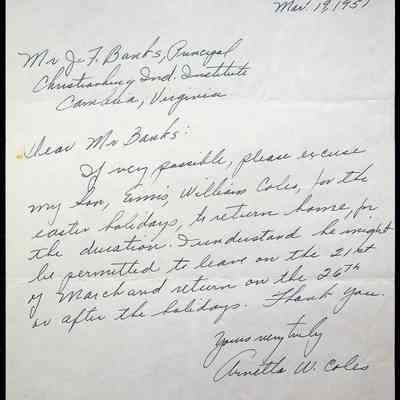 Mar. 19, 1951
Mr J. F. Banks, Principal
Christiansburg Ind. Institute
Cambria, Virginia
Dear Mr Banks:
If very possible, please excuse
my Son, Ennis, William Coles, for the
easter holidays, to return home, for
the duration. I understand he might
be permitted to leave on the 21st
of March and return on the 26th
or after the holidays. Thank you.
Yours very truly
Arnetta W. Coles